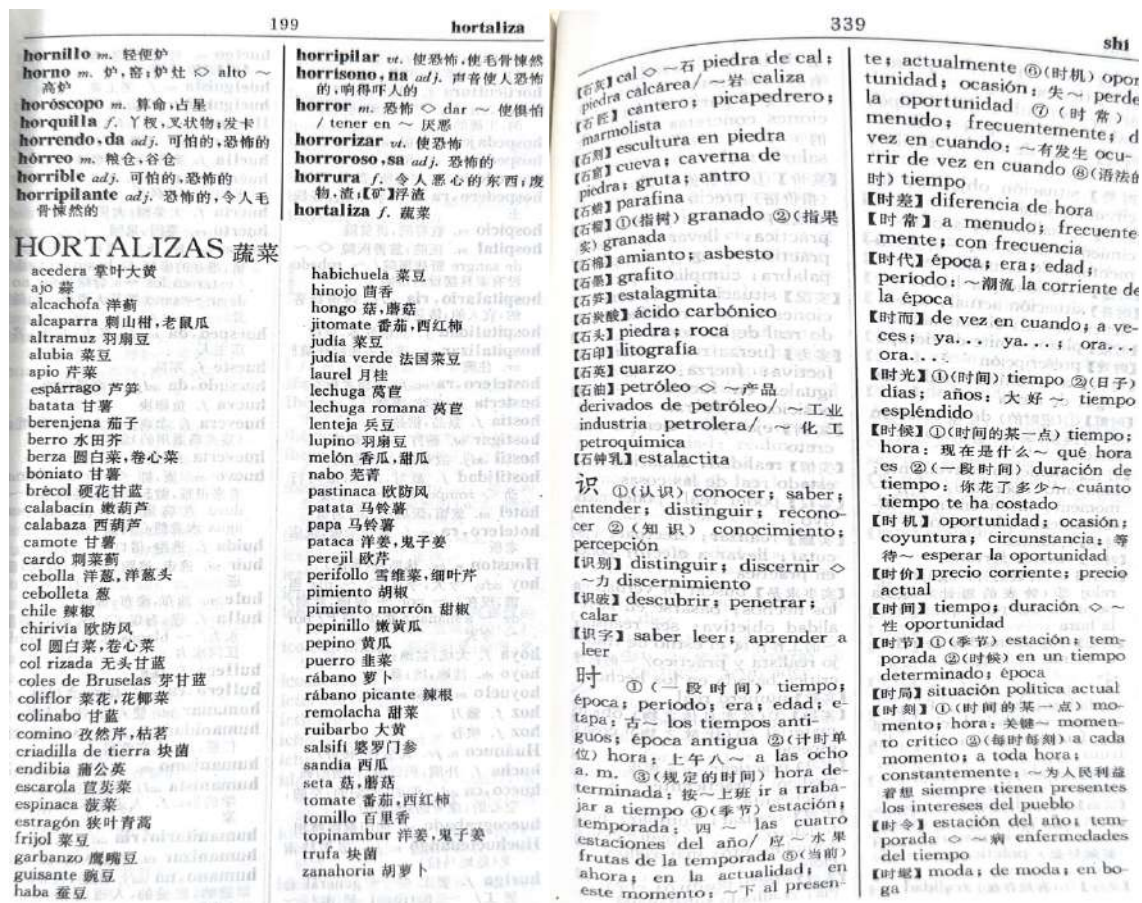 199
hortaliza
hornillo m. 轻便炉
horno m. 炉,窑;炉灶 ◇ alto ~
高炉
horóscopo m. 算命,占星
horquilla f. 丫杈,叉状物;发卡
horrendo,da adj. 可怕的,恐怖的
hórreo m. 粮仓,谷仓
horrible adj. 可怕的,恐怖的
horripilante adj. 恐怖的,令人毛
骨悚然的
horripilar vt. 使恐怖,使毛骨悚然
horrísono,na adj. 声音使人恐怖
的,响得吓人的
horror m. 恐怖 ◇ dar ~ 使惧怕
/ tener en ~ 厌恶
horrorizar vt. 使恐怖
horroroso,sa adj. 恐怖的
horrura f. 令人恶心的东西;废
物,渣;【矿】浮渣
hortaliza f. 蔬菜
HORTALIZAS 蔬菜
acedera 掌叶大黄
ajo 蒜
alcachofa 洋蓟
alcaparra 刺山柑,老鼠瓜
altramuz 羽扇豆
alubia 菜豆
apio 芹菜
espárrago 芦笋
batata 甘薯
berenjena 茄子
berro 水田芥
berza 圆白菜,卷心菜
boniato 甘薯
brécol 硬花甘蓝
calabacín 嫩葫芦
calabaza 西葫芦
camote 甘薯
cardo 刺菜蓟
cebolla 洋葱,洋葱头
cebolleta 葱
chile 辣椒
chirivía 欧防风
col 圆白菜,卷心菜
col rizada 无头甘蓝
coles de Bruselas 芽甘蓝
coliflor 菜花,花椰菜
colinabo 甘蓝
comino 孜然芹,枯茗
criadilla de tierra 块菌
endibia 蒲公英
escarola 苣荬菜
espinaca 菠菜
estragón 狭叶青蒿
frijol 菜豆
garbanzo 鹰嘴豆
guisante 豌豆
haba 蚕豆
habichuela 菜豆
hinojo 茴香
hongo 菇,蘑菇
jitomate 番茄,西红柿
judía 菜豆
judía verde 法国菜豆
laurel 月桂
lechuga 莴苣
lechuga romana 莴苣
lenteja 兵豆
lupino 羽扇豆
melón 香瓜,甜瓜
nabo 芜菁
pastinaca 欧防风
patata 马铃薯
papa 马铃薯
pataca 洋姜,鬼子姜
perejil 欧芹
perifollo 雪维菜,细叶芹
pimiento 胡椒
pimiento morrón 甜椒
pepinillo 嫩黄瓜
pepino 黄瓜
puerro 韭菜
rábano 萝卜
rábano picante 辣根
remolacha 甜菜
ruibarbo 大黄
salsifí 婆罗门参
sandía 西瓜
seta 菇,蘑菇
tomate 番茄,西红柿
tomillo 百里香
topinambur 洋姜,鬼子姜
trufa 块菌
zanahoria 胡萝卜
339
shí
【石灰】cal ◇ ~石 piedra de cal;
piedra calcárea/ ~岩 caliza
【石匠】cantero; picapedrero;
marmolista
【石刻】escultura en piedra
【石窟】cueva; caverna de
piedra; gruta; antro
【石蜡】parafina
【石榴】①(指树) granado ②(指果
实) granada
【石棉】amianto; asbesto
【石墨】grafito
【石笋】estalagmita
【石炭酸】ácido carbónico
【石头】piedra; roca
【石印】litografía
【石英】cuarzo
【石油】petróleo ◇ ~产品
derivados de petróleo/ ~工业
industria petrolera/ ~化工
petroquímica
【石钟乳】estalactita
识 ①(认识) conocer; saber;
entender; distinguir; recono-
cer ②(知识) conocimiento;
percepción
【识别】distinguir; discernir ◇
~力 discernimiento
【识破】descubrir; penetrar;
calar
【识字】saber leer; aprender a
leer
时 ①(一段时间) tiempo;
época; período; era; edad; e-
tapa: 古~ los tiempos anti-
guos; época antigua ②(计时单
位) hora: 上午八~ a las ocho
a. m. ③(规定的时间) hora de-
terminada: 按~上班 ir a traba-
jar a tiempo ④(季节) estación;
temporada: 四 ~ las cuatro
estaciones del año/ 应~水果
frutas de la temporada ⑤(当前)
ahora; en la actualidad; en
este momento: ~下 al presen-
te; actualmente ⑥(时机) opor
tunidad; ocasión: 失~ perde
la oportunidad ⑦(时常) a
menudo; frecuentemente; d
vez en cuando: ~有发生 ocu-
rrir de vez en cuando ⑧(语法的
时) tiempo
【时差】diferencia de hora
【时常】a menudo; frecuente-
mente; con frecuencia
【时代】época; era; edad;
período: ~潮流 la corriente de
la época
【时而】de vez en cuando; a ve-
ces; ya... ya...; ora...
ora...
【时光】①(时间) tiempo ②(日子)
días; años: 大好~ tiempo
espléndido
【时候】①(时间的某一点) tiempo;
hora: 现在是什么~ qué hora
es ②(一段时间) duración de
tiempo: 你花了多少~ cuánto
tiempo te ha costado
【时机】oportunidad; ocasión;
coyuntura; circunstancia: 等
待~ esperar la oportunidad
【时价】precio corriente; precio
actual
【时间】tiempo; duración ◇ ~
性 oportunidad
【时节】①(季节) estación; tem-
porada ②(时候) en un tiempo
determinado; época
【时局】situación política actual
【时刻】①(时间的某一点) mo-
mento; hora: 关键~ momen-
to crítico ②(每时每刻) a cada
momento; a toda hora;
constantemente: ~为人民利益
着想 siempre tienen presentes
los intereses del pueblo
【时令】estación del año; tem-
porada ◇ ~病 enfermedades
del tiempo
【时髦】moda; de moda; en bo-
ga